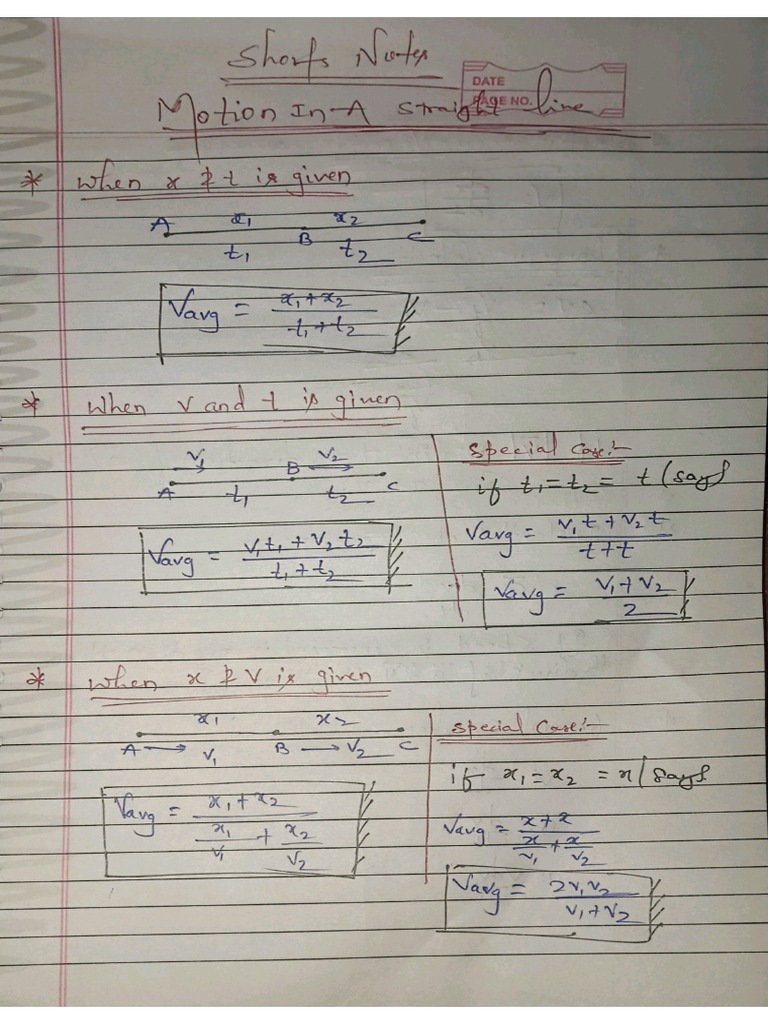 Shorts Notes
DATE
PAGE NO.
Motion In A Straight line
* When x & t is given
A x₁ B x₂ C
t₁ t₂
Vavg = (x₁+x₂)/(t₁+t₂)
* When v and t is given
V₁ V₂
A B C
t₁ t₂
Vavg = (V₁t₁ + V₂t₂)/(t₁+t₂)
Special Case:-
if t₁ = t₂ = t (say)
Vavg = (V₁t + V₂t)/(t+t)
Vavg = (V₁+V₂)/2
* When x & V is given
x₁ x₂
A → V₁ B → V₂ C
Vavg = (x₁+x₂)/(x₁/V₁ + x₂/V₂)
Special Case:-
if x₁ = x₂ = x (say)
Vavg = (x+x)/(x/V₁ + x/V₂)
Vavg = 2V₁V₂/(V₁+V₂)